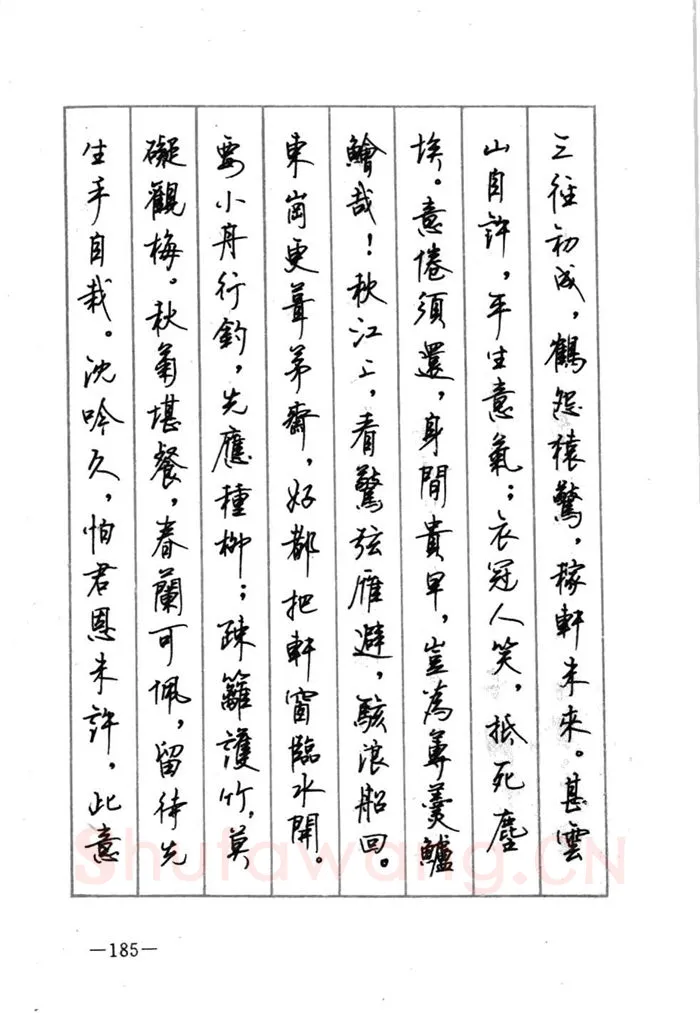 三徑初成，鶴怨猿驚，稼軒未來。甚雲
山自許，平生意氣；衣冠人笑，抵死塵
埃。意倦須還，身閒貴早，豈為蓴羹鱸
鱠哉！秋江上，看驚弦雁避，駭浪船回。
東崗更葺茅齋，好都把軒窗臨水開。
要小舟行釣，先應種柳；疎籬護竹，莫
礙觀梅。秋菊堪餐，春蘭可佩，留待先
生手自栽。沈吟久，怕君恩未許，此意
—185—
Shufawang.CN